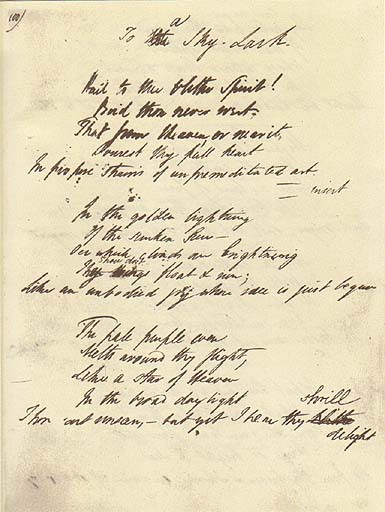 To a Sky-Lark.
Hail to thee blithe Spirit!
Bird thou never wert.
That from Heaven or near it,
Pourest thy full heart
In profuse strains of unpremeditated art
insert
In the golden lightning
Of the sunken Sun —
Oer which clouds are brightning
Thou dost
float & run;
Like an unbodied joy whose race is just begun
The pale purple even
Melts around thy flight,
Like a Star of Heaven
In the broad daylight
shrill
Thou art unseen, — but yet I hear thy
delight